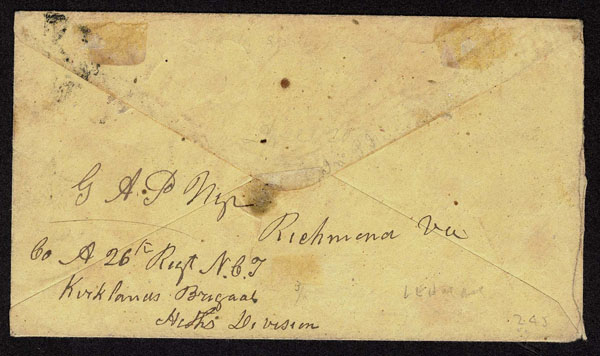 G A. P Nye
Richmond Va
Co A 26th Regt N.C.T
Kirklands Brigade
Heths Division
LEHMAN
245